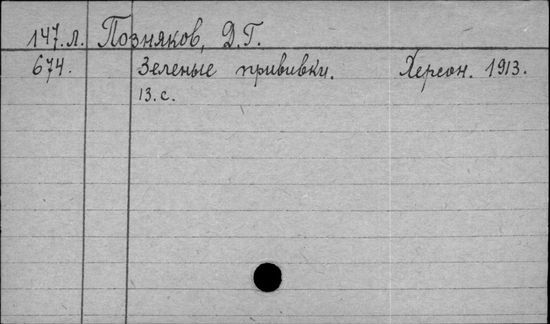 147.л. Позняков, Д.Г.
674. Зеленые прививки. Херсон. 1913.
13.с.